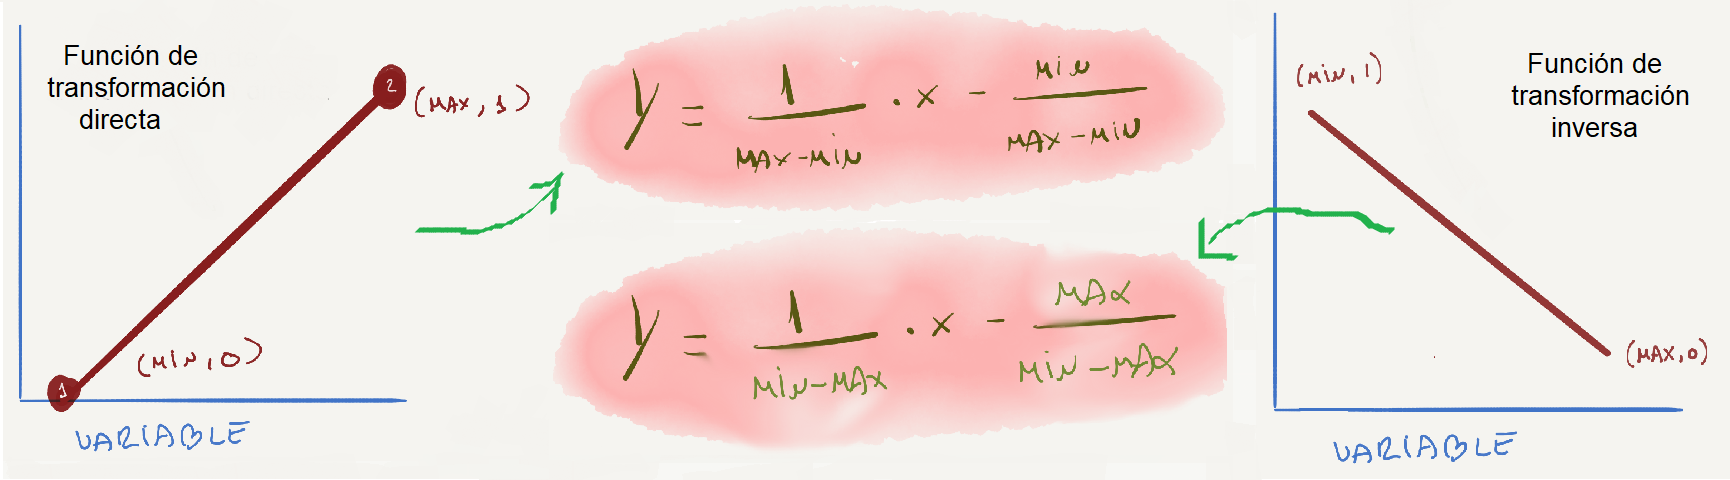 Función de
transformación
directa
2
(MAX, 1)
(MIN, 0)
1
VARIABLE
y = 1/(MAX-MIN) · x - MIN/(MAX-MIN)
y = 1/(MIN-MAX) · x - MAX/(MIN-MAX)
Función de
transformación
inversa
(MIN, 1)
(MAX, 0)
VARIABLE